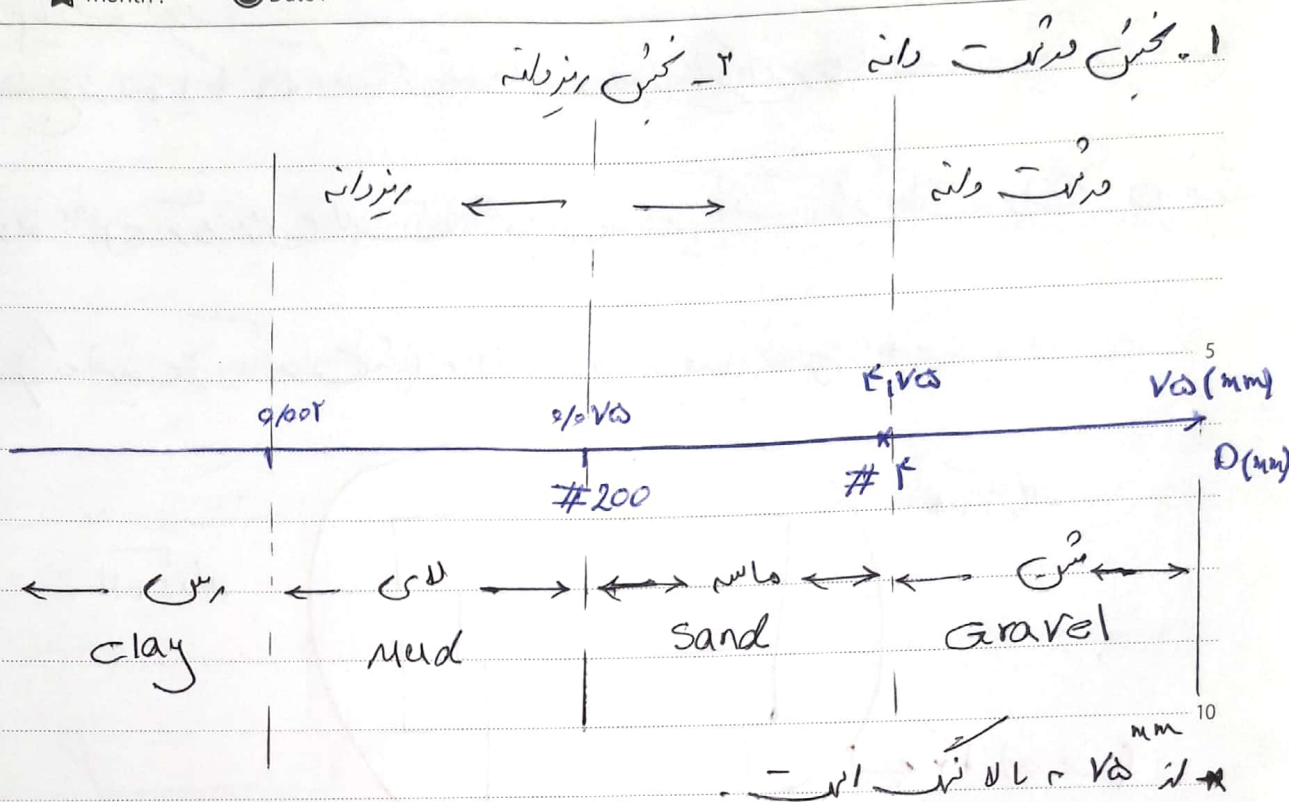 ۱. بخش درشت دانه
۲- بخش ریزدانه
درشت دانه
ریزدانه
5
۰/۰۰۲ ۰/۰۷۵ ۴,۷۵ ۷۵ (mm)
#200 #۴ D(mm)
رس لای ماسه شن
Clay Mud Sand Gravel
10
* از ۷۵ mm به بالا سنگ است.